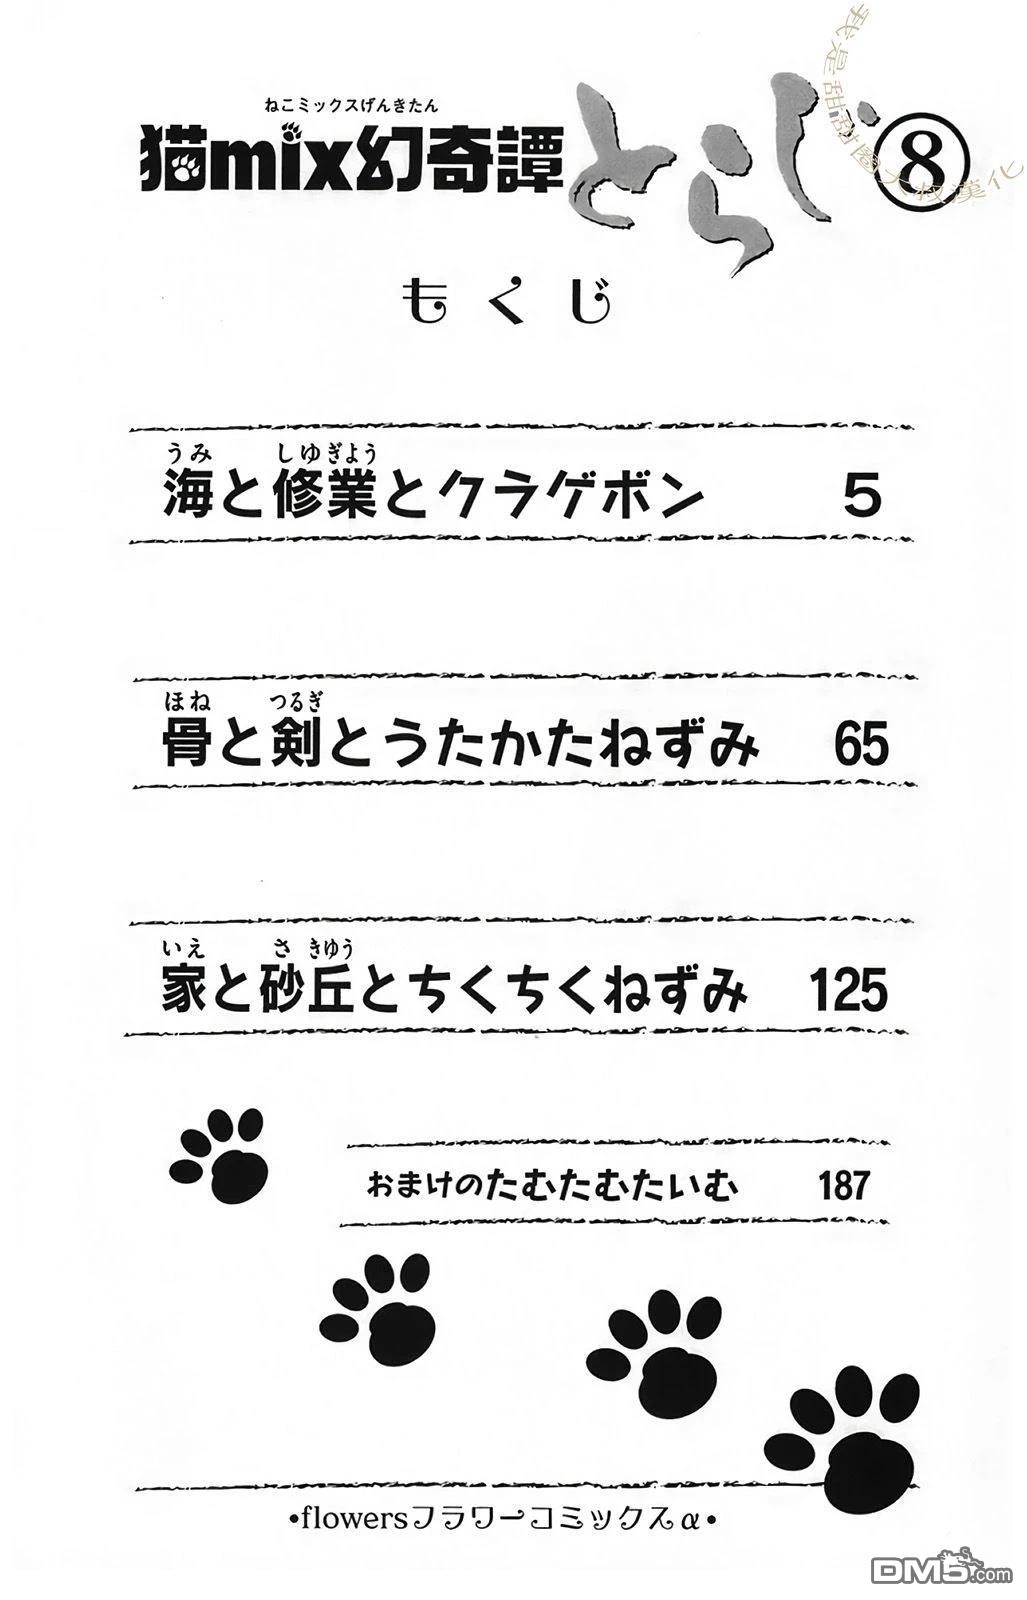 ねこミックスげんきたん
猫mix幻奇譚とらじ ⑧
我是甜甜圈大叔漢化
もくじ
うみ しゆぎよう
海と修業とクラゲボン 5
ほね つるぎ
骨と剣とうたかたねずみ 65
いえ さ きゆう
家と砂丘とちくちくねずみ 125
おまけのたむたむたいむ 187
•flowersフラワーコミックスα•
DM5.com